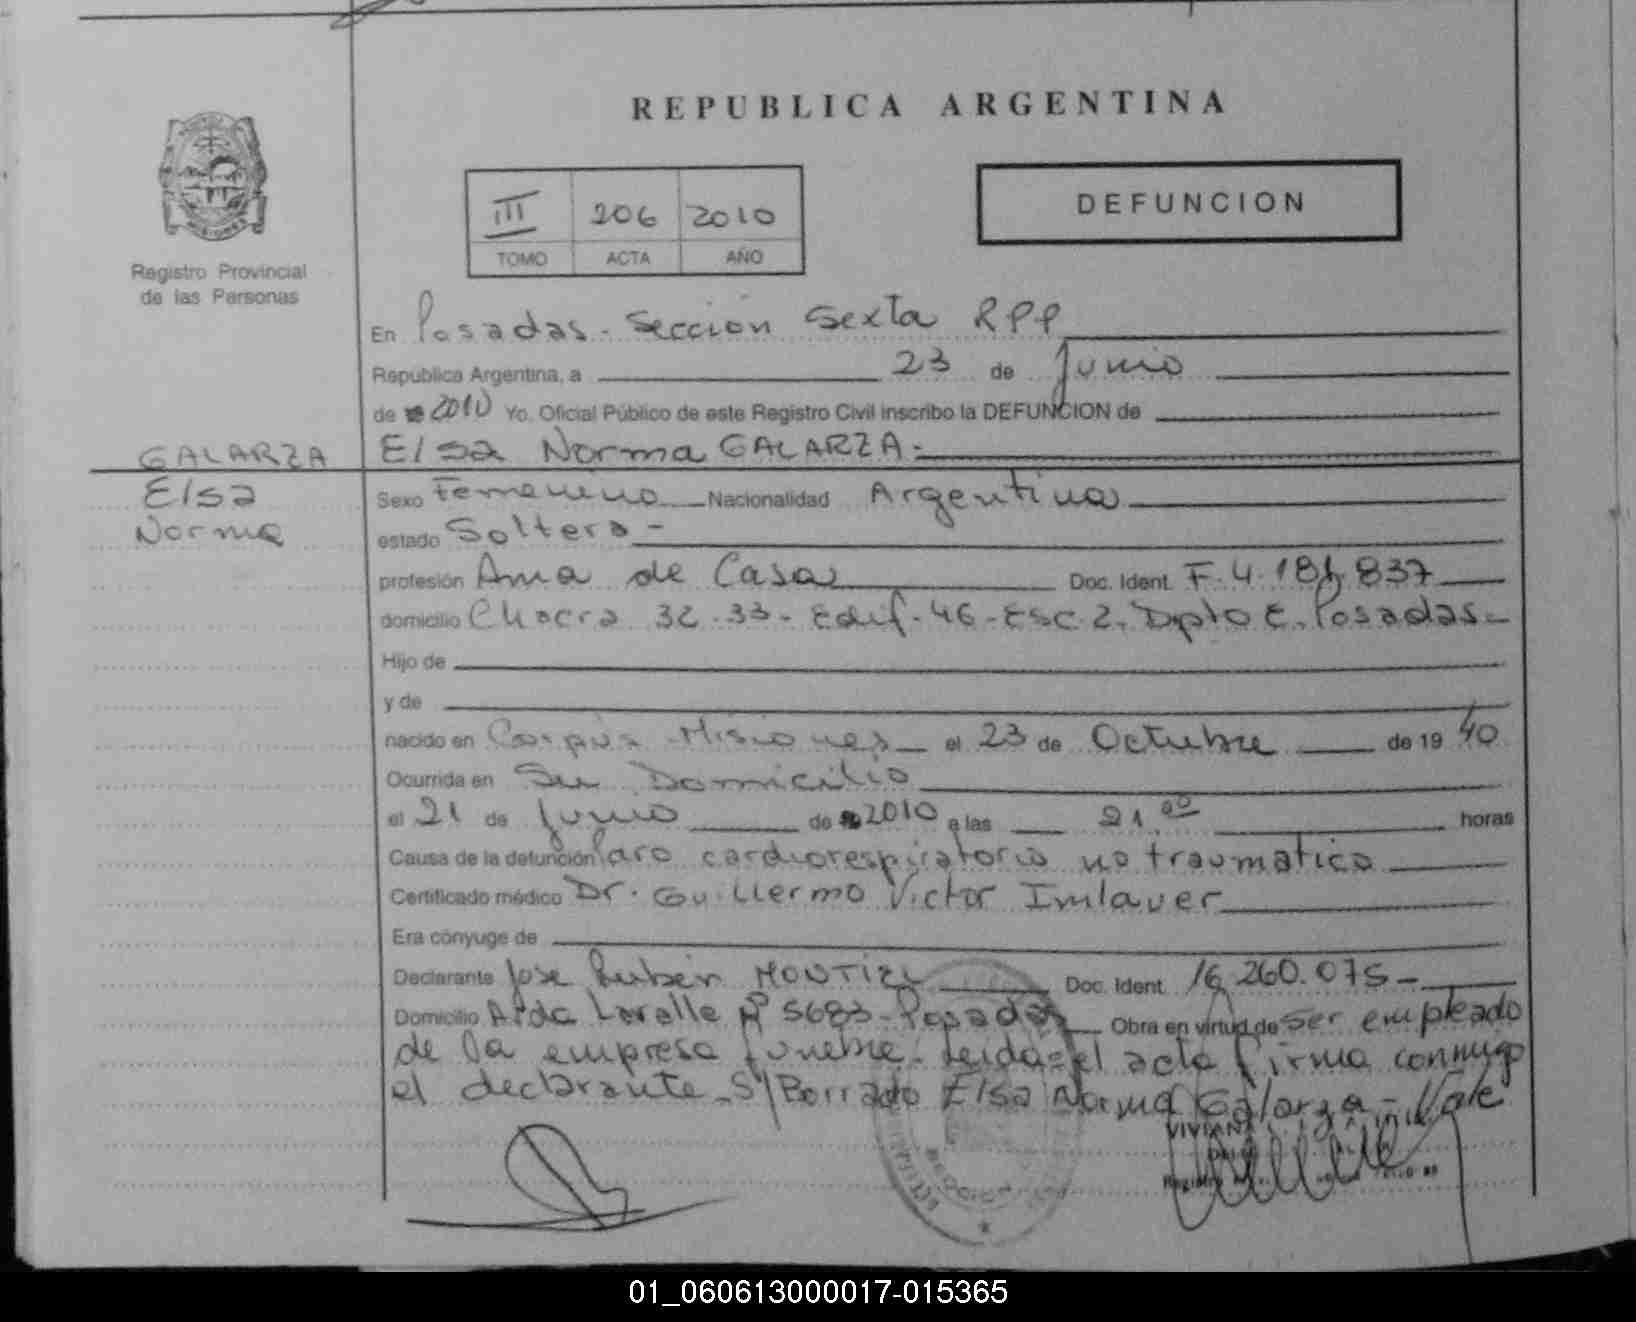 REPUBLICA ARGENTINA
III 206 2010
TOMO ACTA AÑO
DEFUNCION
Registro Provincial
de las Personas
En Posadas - Sección Sexta RPP
Republica Argentina, a 23 de Junio
de 2010 Yo. Oficial Público de este Registro Civil inscribo la DEFUNCION de
GALARZA Elsa Norma GALARZA.-
Elsa
Norma
Sexo Femenino Nacionalidad Argentina
estado Soltera -
profesión Ama de Casa Doc. Ident. F. 4.181.837
domicilio Chacra 32-33- Edif. 46 - Esc. 2. Dpto E. Posadas -
Hijo de
y de
nacido en Corpus - Misiones el 23 de Octubre de 19 40
Ocurrida en Su Domicilio
el 21 de Junio de 2010 a las 21.00 horas
Causa de la defunción Paro cardiorespiratorio no traumatico
Certificado médico Dr. Guillermo Victor Imlauer
Era cónyuge de
Declarante Jose Ruben MONTIEL Doc. Ident. 16.260.075 -
Domicilio Avda Lavalle Nº 5683 - Posadas Obra en virtud de Ser empleado
de la empresa funebre. Leida el acta firma conmigo
el declarante - S/Borrado Elsa Norma Galarza - Vale
VIVIANA
01_060613000017-015365